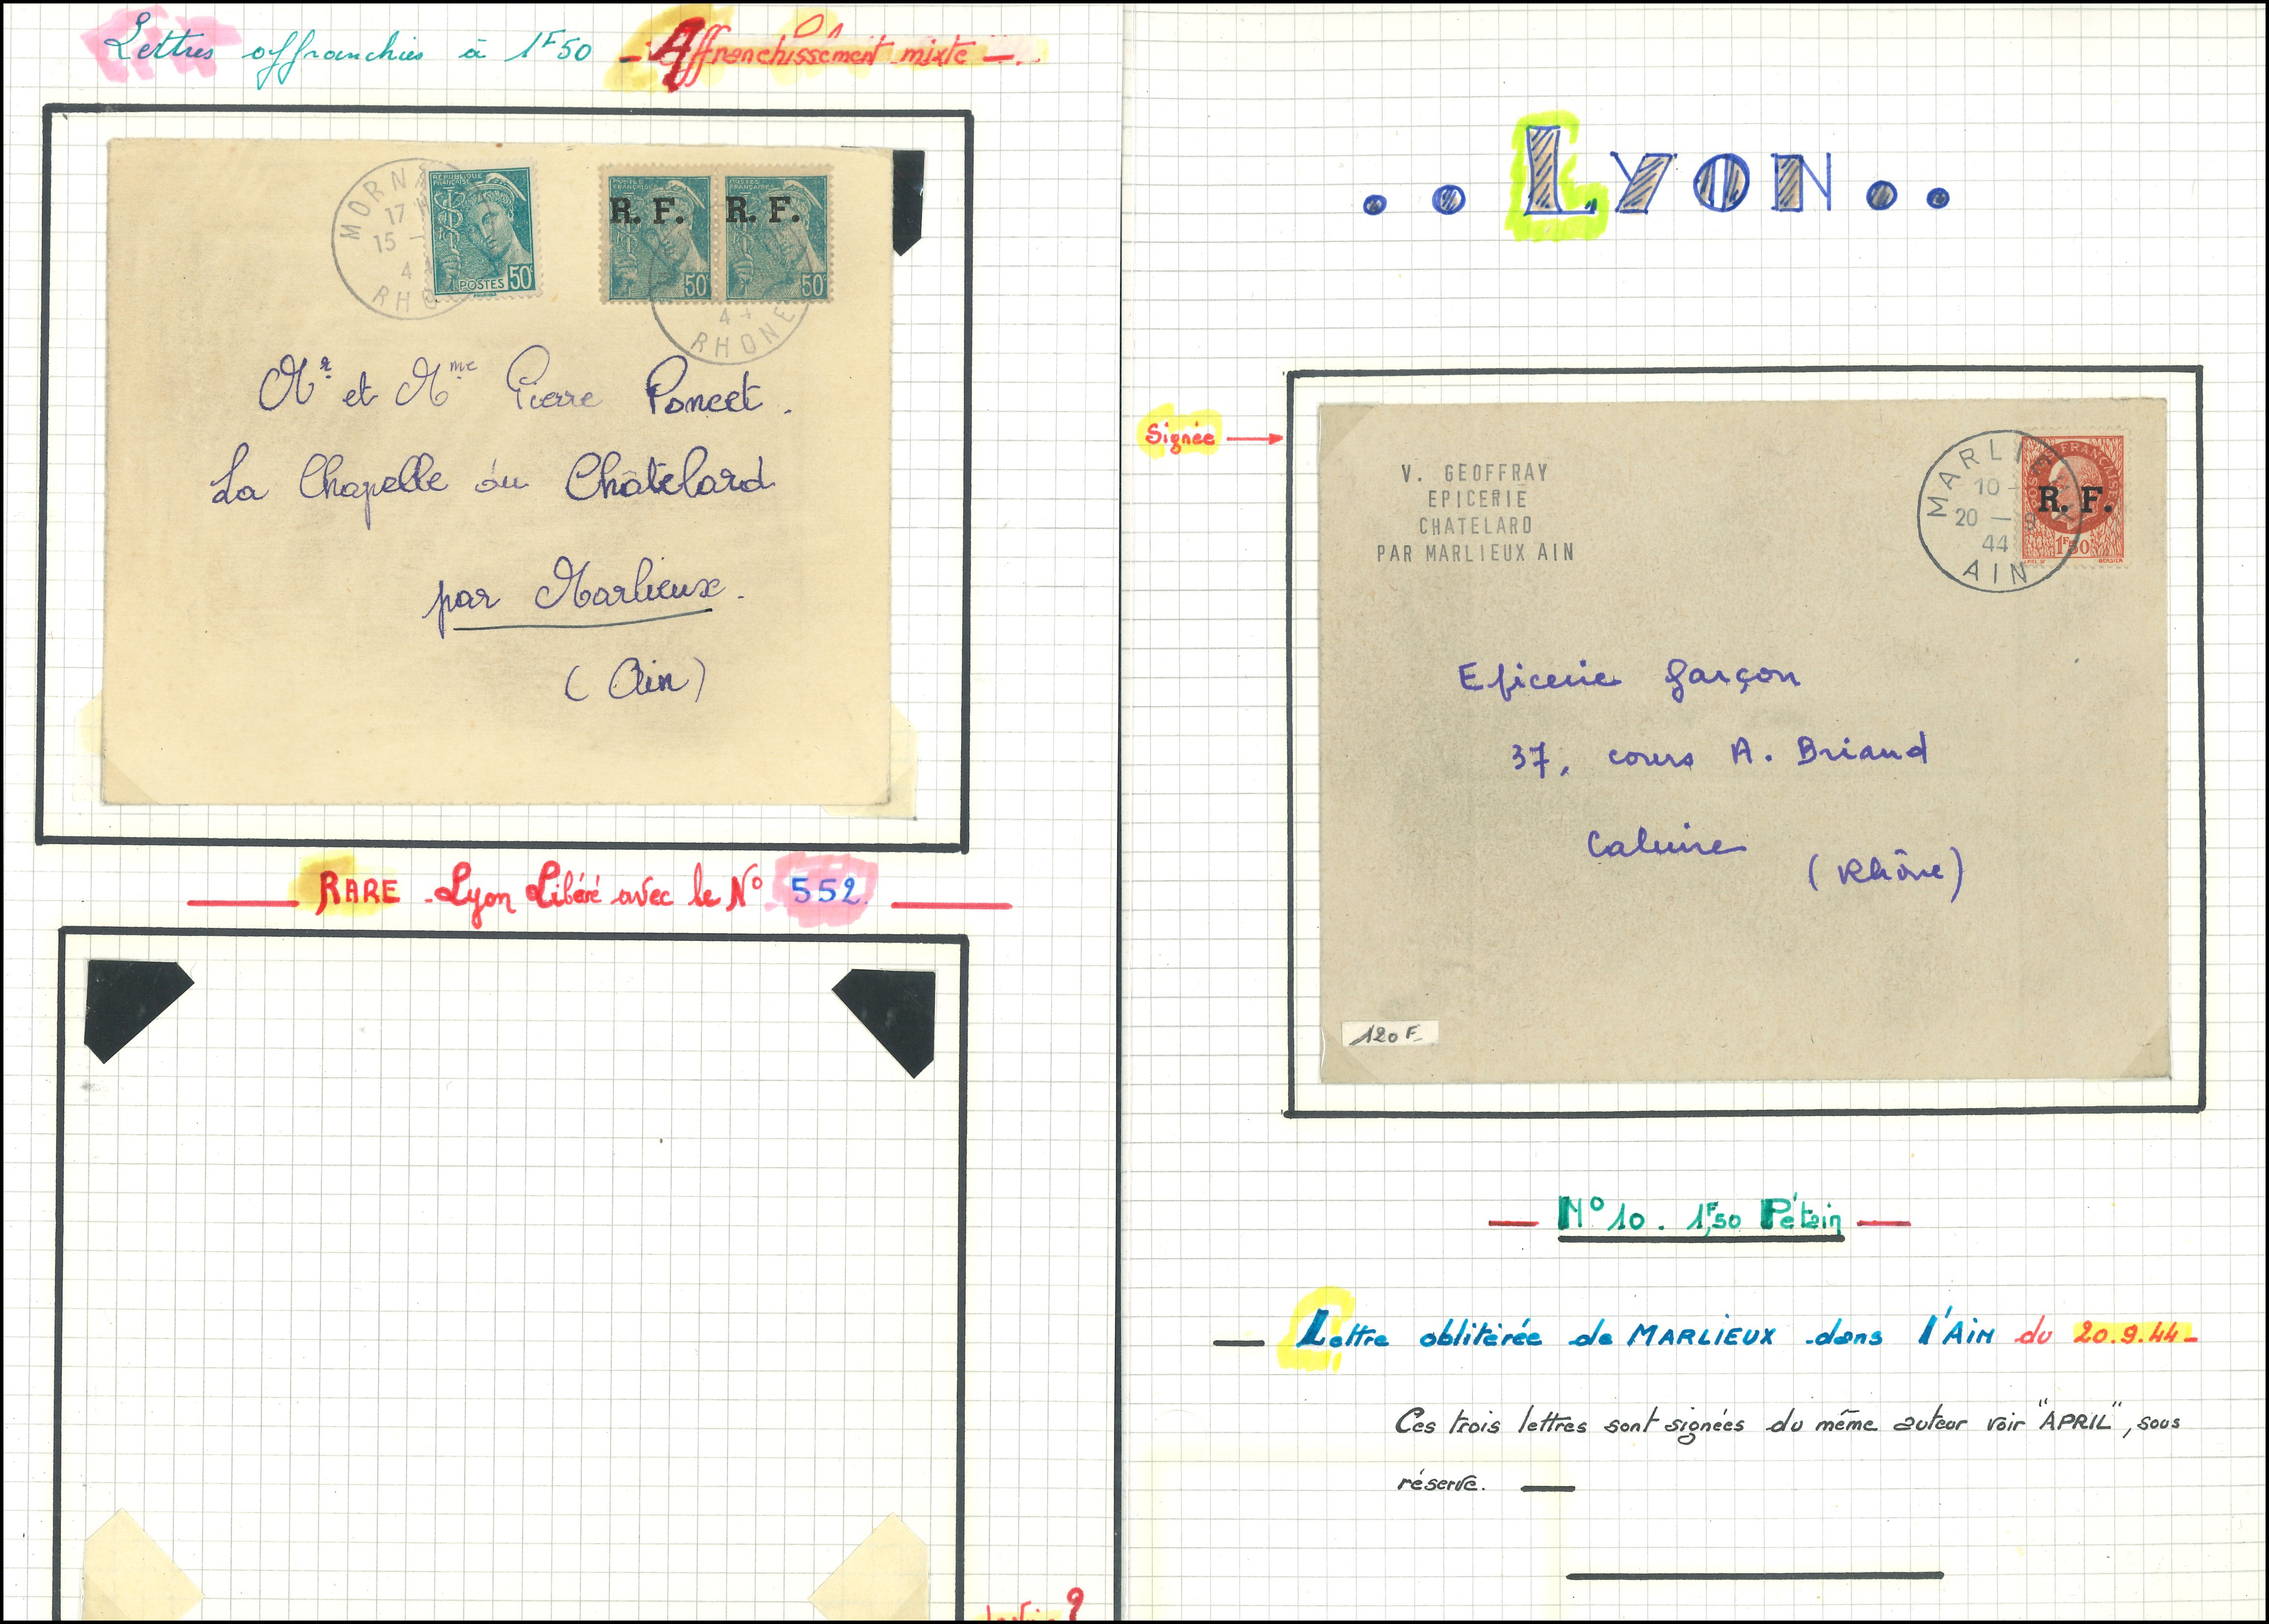 Lettres affranchies à 1F50 - Affranchissement mixte -.
MORNA
17 H
15 -
4
RHO
REPUBLIQUE
FRANCAISE
POSTES 50c
POSTES
FRANÇAISES
R. F.
50c
POSTES
FRANÇAISES
R. F.
50c
44
RHONE
Mr et Mme Pierre Poncet.
La Chapelle du Châtelard
par Marlieux.
(Ain)
RARE - Lyon Libéré avec le No 552.
..LYON..
Signée
V. GEOFFRAY
EPICERIE
CHATELARD
PAR MARLIEUX AIN
MARLIEUX
10 -
20 - 9
44
AIN
POSTES FRANÇAISES
R. F.
1F50
BERSIER
Epicerie Garçon
37, cours A. Briand
Caluire
(Rhône)
120 F-
- No 10. 1F,50 Pétain -
- Lettre oblitérée de MARLIEUX dans l'AIN du 20.9.44-
Ces trois lettres sont signées du même auteur voir "APRIL", sous
réserve. -